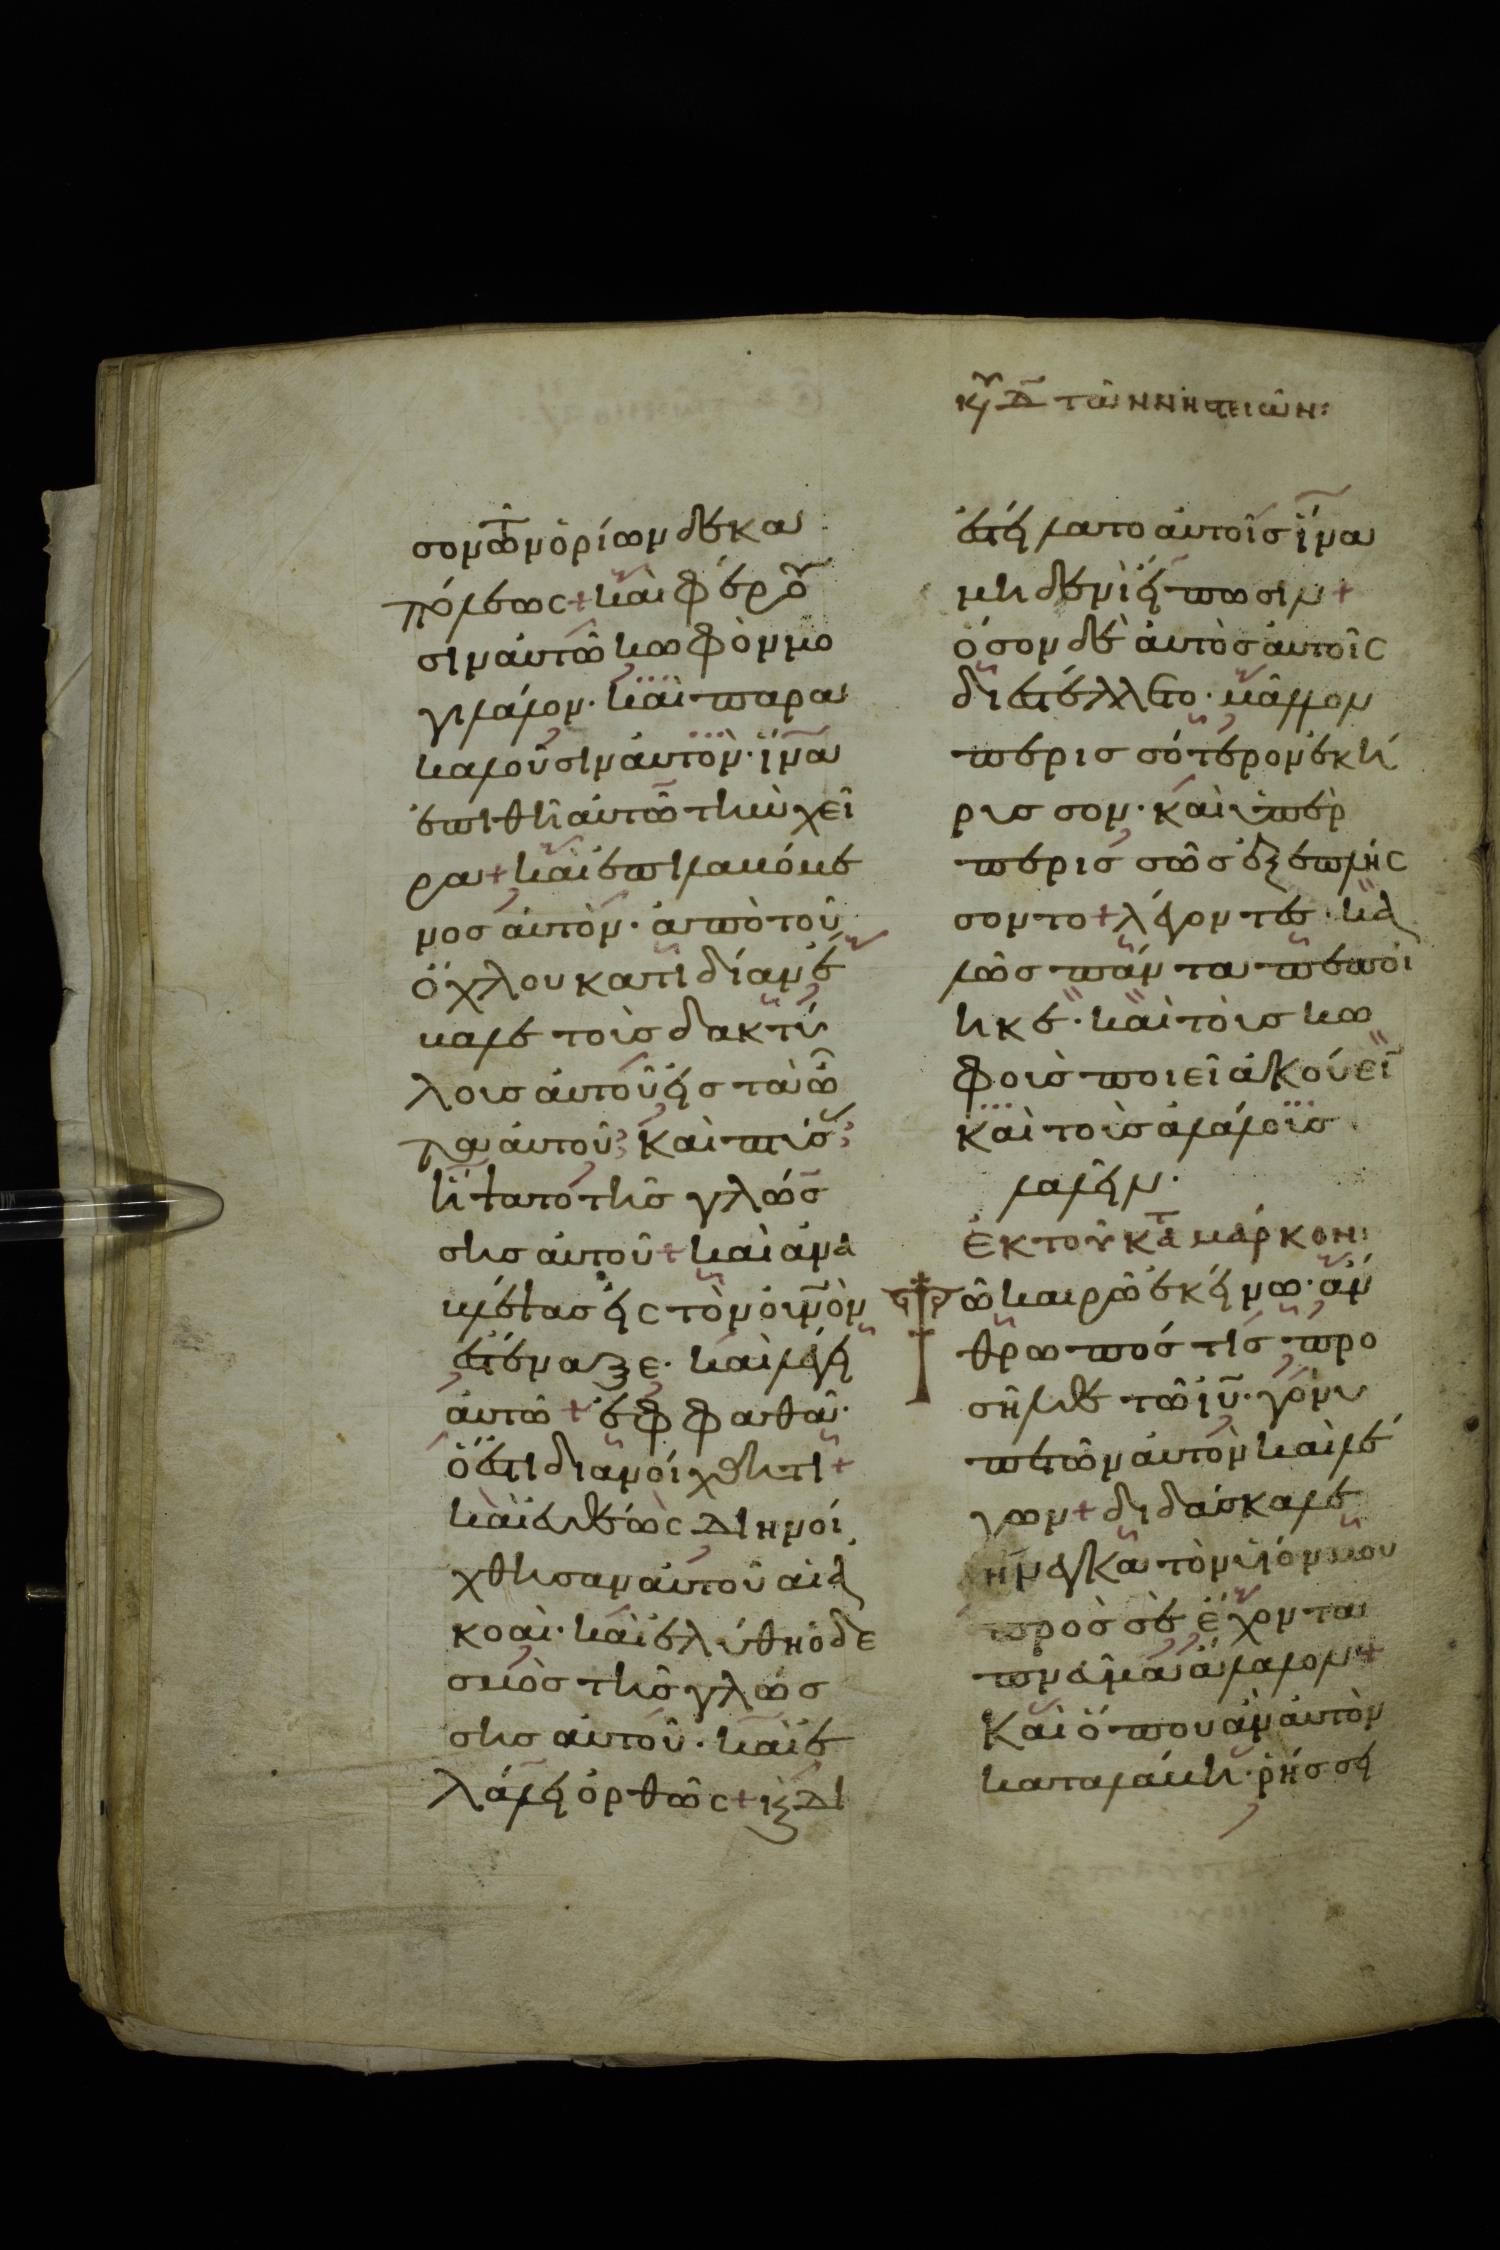 κυ δ τῶν νηστειῶν:
σον τῶν ὁρίων δεκα
πόλεως + καὶ φέρου
σιν αυτῶ κωφὸν μο
γιλάλον· καὶ παρα
καλοῦσιν αυτὸν· ἵνα
ἐπιθῆ αυτῶ τὴν χεῖ
ρα + καὶ ἐπιλαβόμε
νος αυτὸν· ἀπὸ τοῦ
ὄχλου κατιδίαν ἔ
βαλε τοὺς δακτύ
λους αυτοῦ εἰς τὰ ὦ
τα αυτοῦ· καὶ πτύσ
ήψατο τῆς γλώσ
σης αυτοῦ + καὶ ἀνα
βλέψας εἰς τὸν οὐνὸν
ἐστέναξε· καὶ λέγει
αυτῶ + ἐφφαθὰ·
ὅ ἐστι διανοίχθητι +
καὶ ευθέως διηνοί
χθησαν αυτοῦ αἱ ἀ
κοαὶ· καὶ ἐλύθη ὁ δε
σμὸς τῆς γλώσ
σης αυτοῦ· καὶ ἐ
λάλει ὀρθῶς + κ δι
εστείλατο αυτοῖς ἵνα
μηδενὶ είπωσιν +
ὅσον δὲ αυτὸς αυτοῖς
διεστέλλετο· μᾶλλον
περισσότερον ἐκή
ρυσσον· καὶ ὑπὲρ
περισσῶς ἐξεπλήσ
σοντο + λέγοντες· κα
λῶς πάντα πεποί
ηκε· καὶ τοὺς κω
φοὺς ποιεῖ ἀκούειν
καὶ τοὺς ἀλάλους
λαλεῖν·
ἐκ τοῦ κατ μάρκον:
Τῶ καιρῶ ἐκείνω· ἄν
θρωπός τις προ
σῆλθε τῶ ιυ· γόνυ
πετῶν αυτὸν καὶ λέ
γων + διδάσκαλε
ήνεγκα τὸν υἱόν μου
πρὸς σὲ ἔχοντα
πνεῦμα ἄλαλον +
καὶ ὅπου ἂν αυτὸν
καταλάβη· ῥήσσει